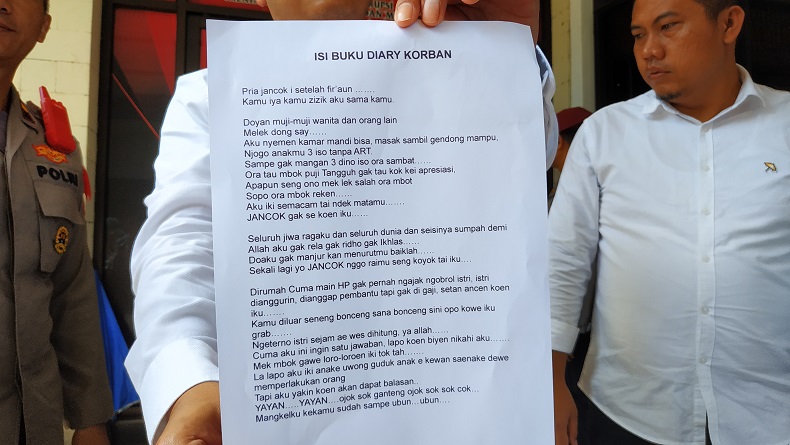 ISI BUKU DIARY KORBAN
Pria jancok i setelah fir'aun .......
Kamu iya kamu zizik aku sama kamu.
Doyan muji-muji wanita dan orang lain
Melek dong say......
Aku nyemen kamar mandi bisa, masak sambil gendong mampu,
Njogo anakmu 3 iso tanpa ART.
Sampe gak mangan 3 dino iso ora sambat......
Ora tau mbok puji Tangguh gak tau kok kei apresiasi,
Apapun seng ono mek lek salah ora mbot
Sopo ora mbok reken......
Aku iki semacam tai ndek matamu.......
JANCOK gak se koen iku......
Seluruh jiwa ragaku dan seluruh dunia dan seisinya sumpah demi
Allah aku gak rela gak ridho gak Ikhlas......
Doaku gak manjur kan menurutmu baiklah......
Sekali lagi yo JANCOK nggo raimu seng koyok tai iku....
Dirumah Cuma main HP gak pernah ngajak ngobrol istri, istri
dianggurin, dianggap pembantu tapi gak di gaji, setan ancen koen
iku.......
Kamu diluar seneng bonceng sana bonceng sini opo kowe iku
grab.......
Ngeterno istri sejam ae wes dihitung, ya allah......
Cuma aku ini ingin satu jawaban, lapo koen biyen nikahi aku.......
Mek mbok gawe loro-loroen iki tok tah.......
La lapo aku iki anake uwong guduk anak e kewan saenake dewe
memperlakukan orang
Tapi aku yakin koen akan dapat balasan..
YAYAN.....YAYAN....ojok sok ganteng ojok sok sok cok...
Mangkelku kekamu sudah sampe ubun...ubun....
POLRI